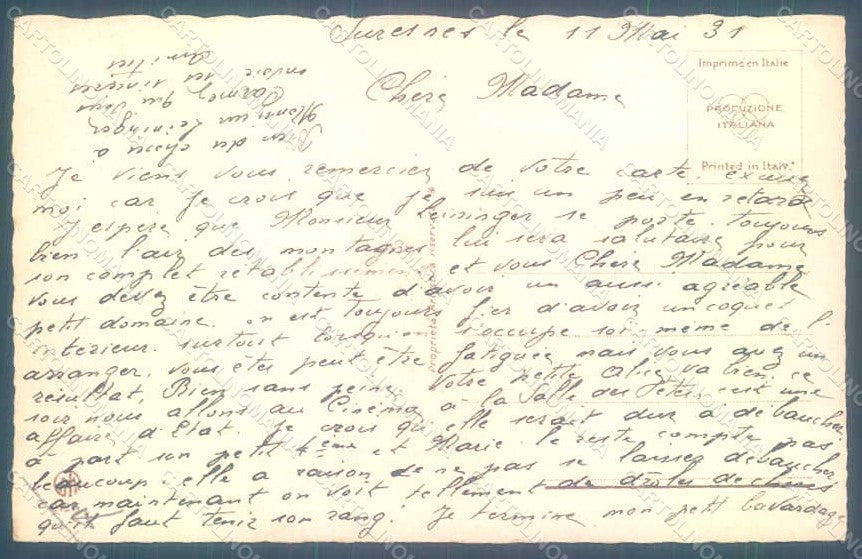 Suresnes le 11 Mai 31
Imprimé en Italie
PRODUZIONE
ITALIANA
Printed in Italy
Chère Madame
Je viens vous remercier de votre carte excusez
moi car je crois que je suis un peu en retard
J'espère que Monsieur Leininger se porte toujours
bien l'air des montagnes lui sera salutaire pour
son complet rétablissement et vous Chère Madame
vous devez être contente d'avoir un aussi agréable
petit domaine. on est toujours fier d'avoir un coquet
intérieur surtout lorsqu'on s'occupe soi même de l'
arranger, vous êtes peut être fatiguée mais vous avez un
résultat. Bien sans peine. Votre petite Alice va bien. ce
soir nous allons au Cinéma à la Salle des Fêtes c'est une
affaire d'Etat. Je crois qu'elle serait dure à débaucher
à part son petit 4ème et Marie. le reste compte pas
beaucoup elle a raison de ne pas se laisser débaucher
car maintenant on voit tellement de drôles de choses
qu'il faut tenir son rang. Je termine mon petit bavardage
Monsieur Leininger
Carmel qui vous
envoie sa sincère
Amitié
Proprietà artistica riservata
CARTOLINOMANIA